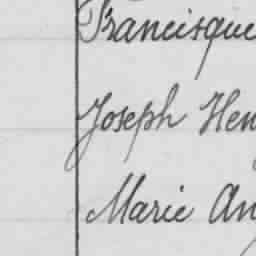 Francisque
Joseph Hen
Marie An